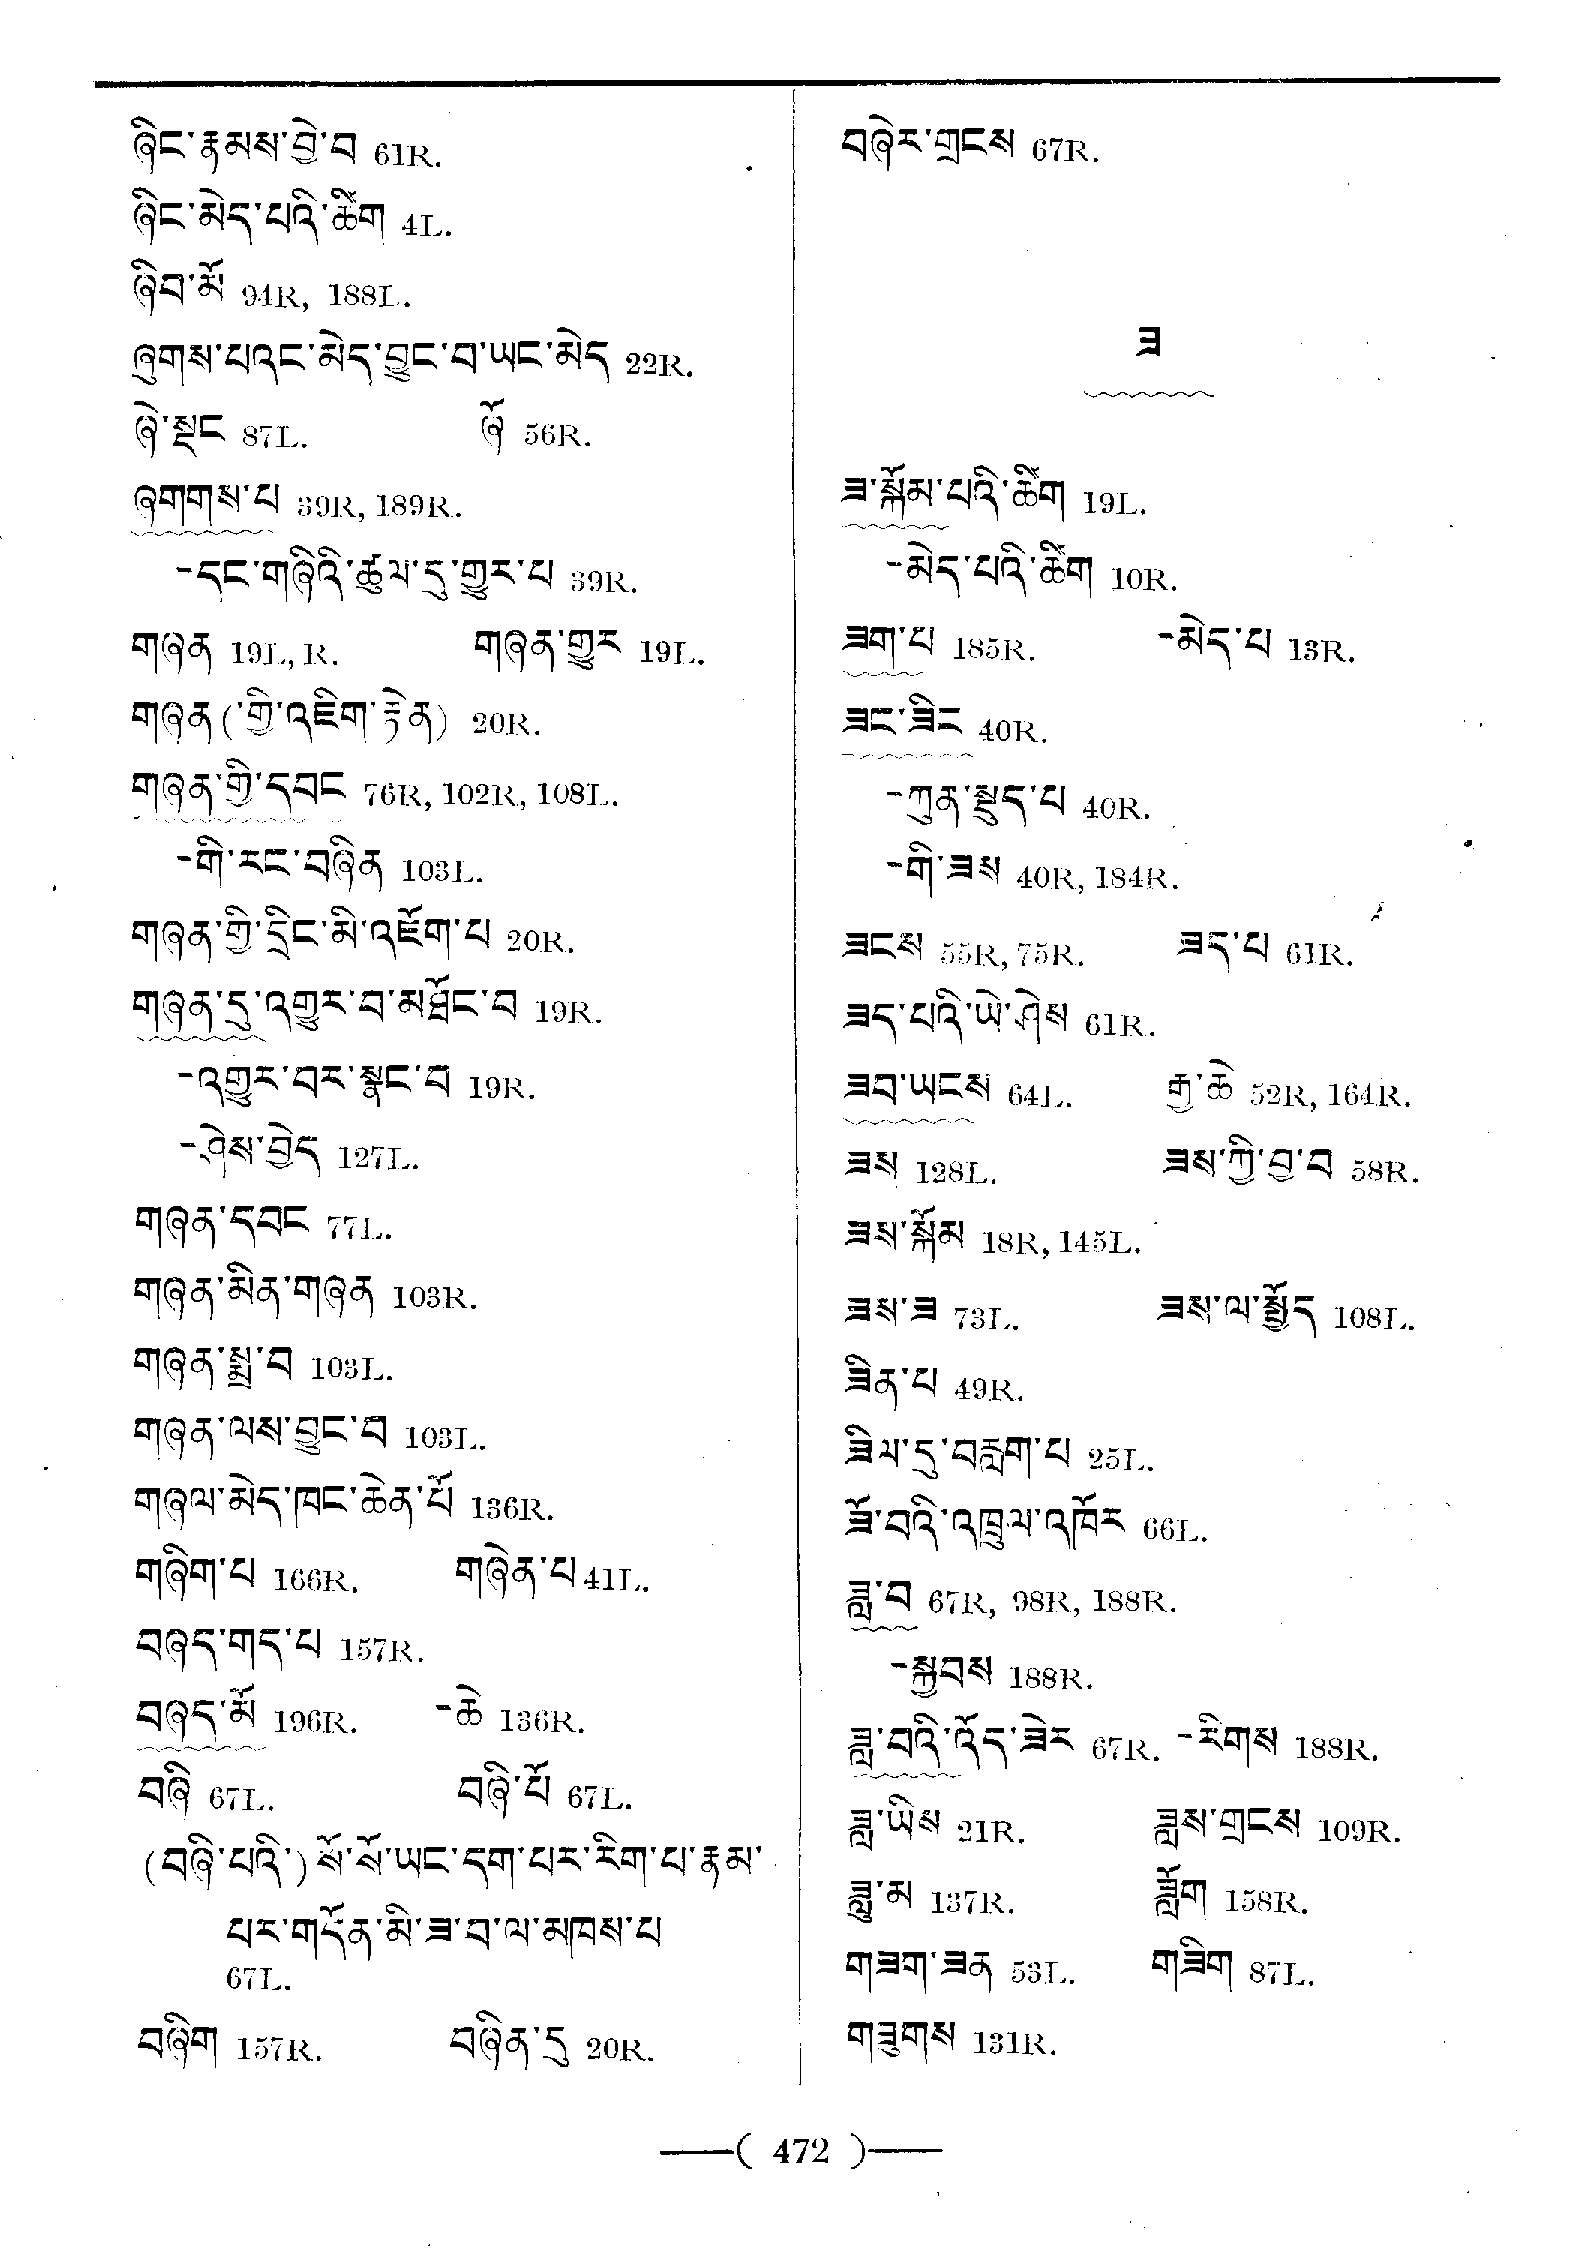 ཞིང་རྣམས་བྱེ་བ 61R.
ཞིང་མེད་པའི་ཚིག 4L.
ཞིབ་མོ 94R, 188L.
ཞུགས་པའང་མེད་བྱུང་བ་ཡང་མེད 22R.
ཞེ་སྡང 87L. ཞོ 56R.
ཞགགས་པ 39R, 189R.
-དང་གཞིའི་ཚུལ་དུ་གྱུར་པ 39R.
གཞན 19L, R. གཞན་གྱུར 19L.
གཞན(་གྱི་འཇིག་རྟེན) 20R.
གཞན་གྱི་དབང 76R, 102R, 108L.
-གི་རང་བཞིན 103L.
གཞན་གྱི་དྲིང་མི་འཇོག་པ 20R.
གཞན་དུ་འགྱུར་བ་མཐོང་བ 19R.
-འགྱུར་བར་སྣང་བ 19R.
-ཤེས་བྱེད 127L.
གཞན་དབང 77L.
གཞན་མིན་གཞན 103R.
གཞན་སྨྲ་བ 103L.
གཞན་ལས་བྱུང་བ 103L.
གཞལ་མེད་ཁང་ཆེན་པོ 136R.
གཞིག་པ 166R. གཞེན་པ 41L.
བཞད་གད་པ 157R.
བཞད་མོ 196R. -ཆེ 136R.
བཞི 67L. བཞི་པོ 67L.
(བཞི་པའི་) སོ་སོ་ཡང་དག་པར་རིག་པ་རྣམ་
པར་གདོན་མི་ཟ་བ་ལ་མཁས་པ
67L.
བཞིག 157R. བཞིན་དུ 20R.
བཞེར་གྲངས 67R.
ཟ
ཟ་སྐོམ་པའི་ཚིག 19L.
-མེད་པའི་ཚིག 10R.
ཟག་པ 185R. -མེད་པ 13R.
ཟང་ཟིང 40R.
-ཀུན་སྔུད་པ 40R.
-གི་ཟས 40R, 184R.
ཟངས 55R, 75R. ཟད་པ 61R.
ཟད་པའི་ཡེ་ཤེས 61R.
ཟབ་ཡངས 64L. རྒྱ་ཆེ 52R, 164R.
ཟས 128L. ཟས་ཀྱི་བྱ་བ 58R.
ཟས་སྐོམ 18R, 145L.
ཟས་ཟ 73L. ཟས་ལ་སྤྱོད 108L.
ཟིན་པ 49R.
ཟིལ་དུ་བརླག་པ 25L.
ཟོ་བའི་འཁྲུལ་འཁོར 66L.
ཟླ་བ 67R, 98R, 188R.
-སྐྱབས 188R.
ཟླ་བའི་འོད་ཟེར 67R. -རིགས 188R.
ཟླ་ཡིས 21R. ཟླས་གྲངས 109R.
ཟླུ་མ 137R. ཟློག 158R.
གཟག་ཟན 53L. གཟིག 87L.
གཟུགས 131R.
( 472 )